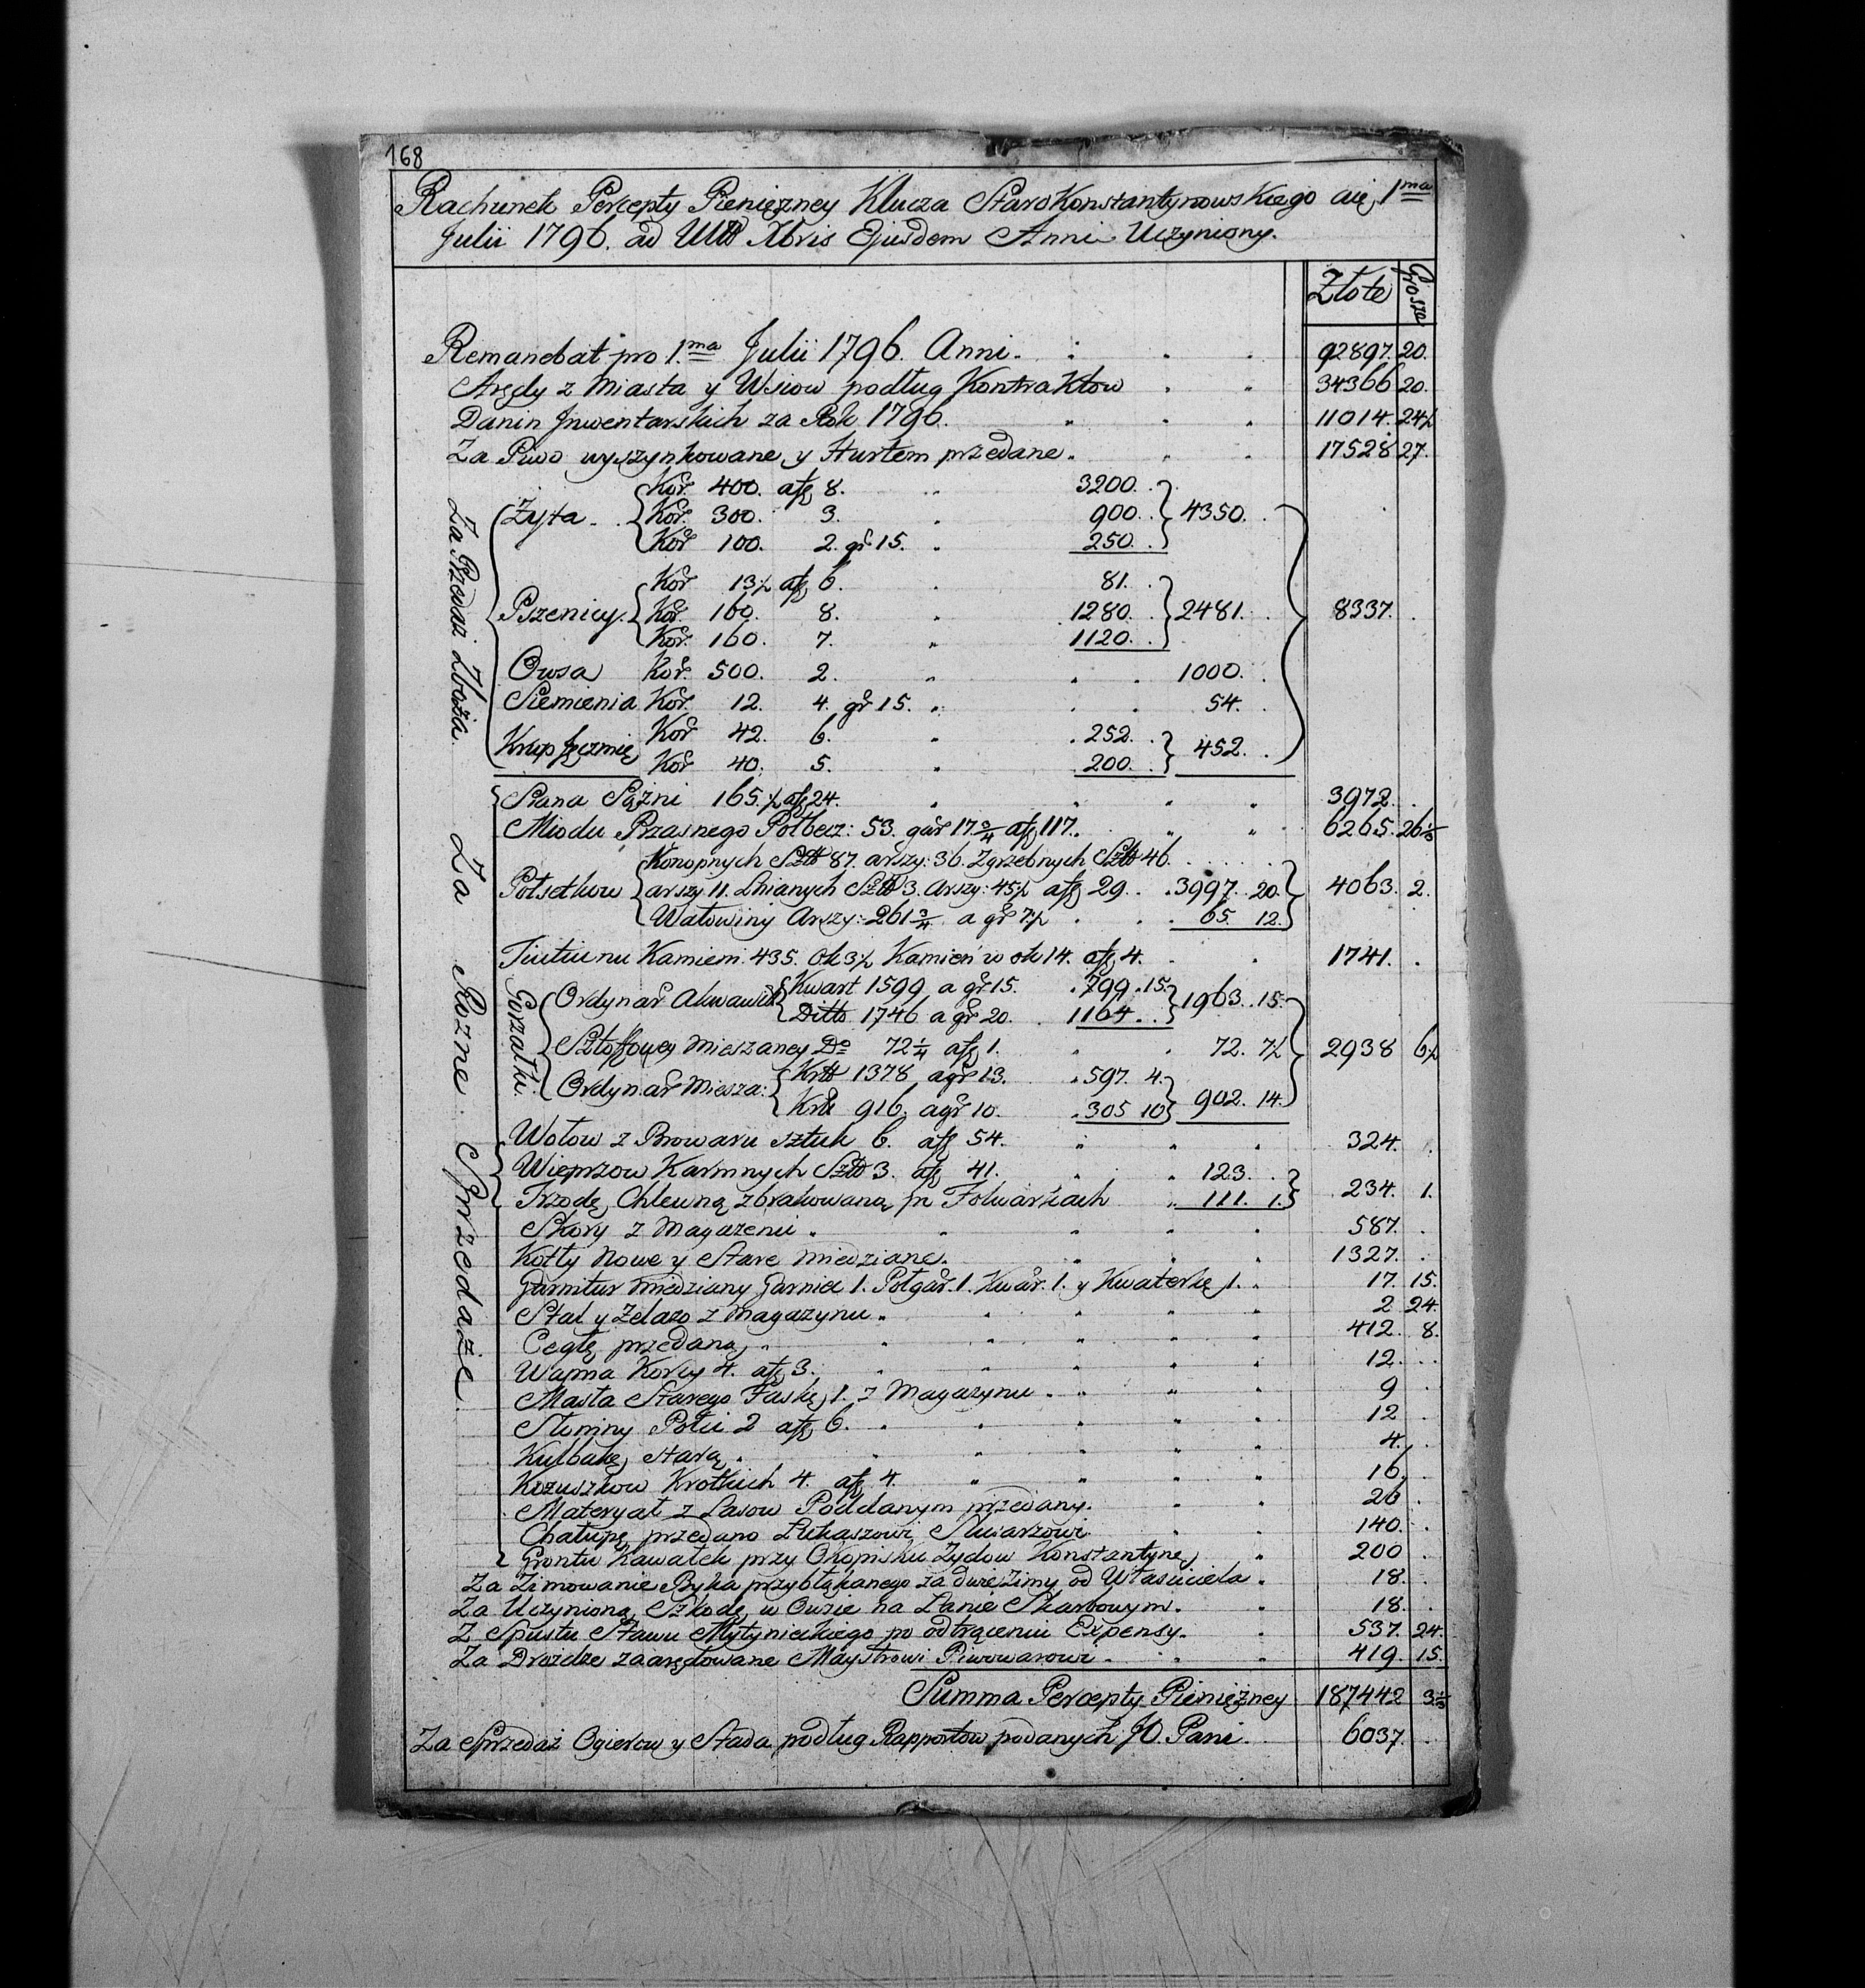 168
Rachunek Percepty Pieniężney Klucza StaroKonstantynowskiego a die 1ma
Julii 1796. ad Ult Xbris Ejusdem Anni Uczyniony.
Złote Grosze
Remanebat pro 1.ma Julii 1796. Anni. 92897. 20.
Arędy z Miasta y Wsiow podług Kontraktow 34366 20.
Danin Jnwentarskich za Rok 1796. 11014. 24½
Za Piwo wyszynkowane y Hurtem przedane. 17528 27.
Za Przedaż Zboża.
Żyta Kor. 400. a f 8. 3200.
Kor. 300. 3. 900. 4350.
Kor 100. 2. gr 15. 250.
Kor 13½ a f 6. 81.
Pszenicy. Kor. 160. 8. 1280. 2481. 8337.
Kor. 160. 7. 1120.
Owsa Kor. 500. 2. 1000.
Siemienia Kor. 12. 4. gr 15. 54.
Krup Jęczmię Kor 42. 6. 252. 452.
Kor 40. 5. 200.
Za Rożne Sprzedaże.
Siana Sążni 165.½ a f 24. 3972.
Miodu Przasnego Połbecz: 53. gar 17¾ a f 117. 6265. 26
Konopnych Szt 87. arszy: 36. Zgrzebnych Szt 46.
Połsetkow arszy 11. Lnianych Szt 3. Arszy: 45½ a f 29. 3997. 20. 4063. 2.
Wałowiny Arszy: 261¾ a gr 7½ 65. 12.
Tiutiunu Kamieni. 435. Ok 3½ Kamień w ok 14. a f 4. 1741.
Gorzałki.
Ordynar Akwawit Kwart 1599 a gr 15. 799. 15. 1963. 15.
Ditto 1746 a gr 20. 1164.
Sztoffowey Mieszaney Do 72¼ a f 1. 72. 7½ 2938 6½
Ordynar Miesza: Krtt 1378 a gr 13. 597. 4. 902. 14.
Krtt 916. a gr 10. 305 10
Wołow z Browaru sztuk 6. a f 54. 324.
Wieprzow Karmnych Szt 3. a f 41. 123.
Trzodę Chlewną zbrakowaną po Folwarkach 111. 1. 234. 1.
Skory z Magazenu 587.
Kotły Nowe y Stare Miedziane. 1327.
Garnitur Miedziany Garniec 1. Połgar. 1. Kwar. 1. y Kwaterkę 1. 17. 15.
Stal y Żelazo z Magazynu. 2 24.
Cegłę przedaną 412. 8.
Wapna Korcy 4. a f 3. 12.
Masła Starego Faskę 1. z Magazynu. 9
Słoniny Połci 2 a f 6. 12
Kulbakę starą. 4.
Kożuszkow Krotkich 4. a f 4. 16.
Materyał z Lasow Poddanym przedany. 26
Chałupę przedano Łukaszowi Slusarzowi 140.
Grontu Kawałek przy Okopisku Żydow Konstantyne 200
Za Zimowanie Byka przybłąkanego za dwie Zimy od Właściciela. 18.
Za Uczynioną Szkodę w Owsie na Łanie Skarbowym. 18.
Z Spustu Stawu Mytynieckiego po odtrąceniu Expensy. 537. 24.
Za Drożdże zaarędowane Maystrowi Piwowarowi. 419. 15.
Summa Percepty Pieniężney 187442 3
Za Sprzedaż Ogierow y Stada podług Rapportow podanych JO. Pani. 6037.